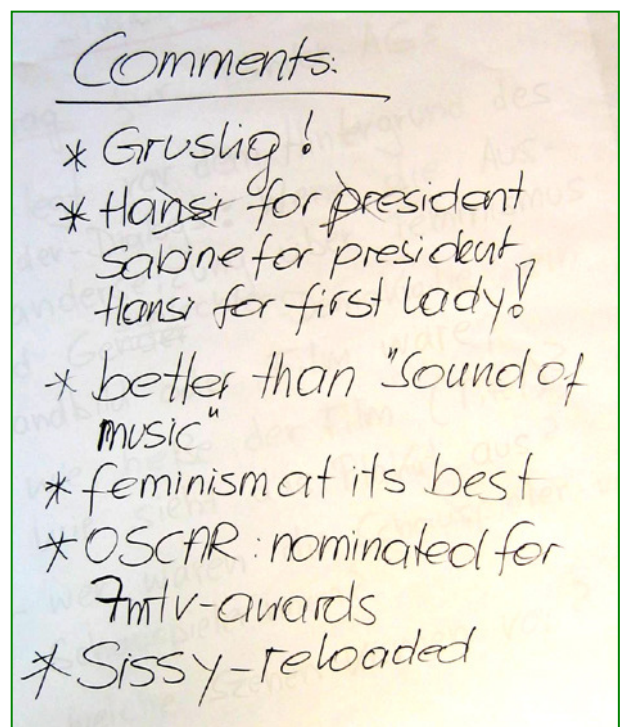 Comments:
* Gruslig!
* Hansi for president
Sabine for president
Hansi for first lady!
* better than "Sound of
music"
* feminism at its best
* OSCAR: nominated for
7 mtv-awards
* Sissy-reloaded